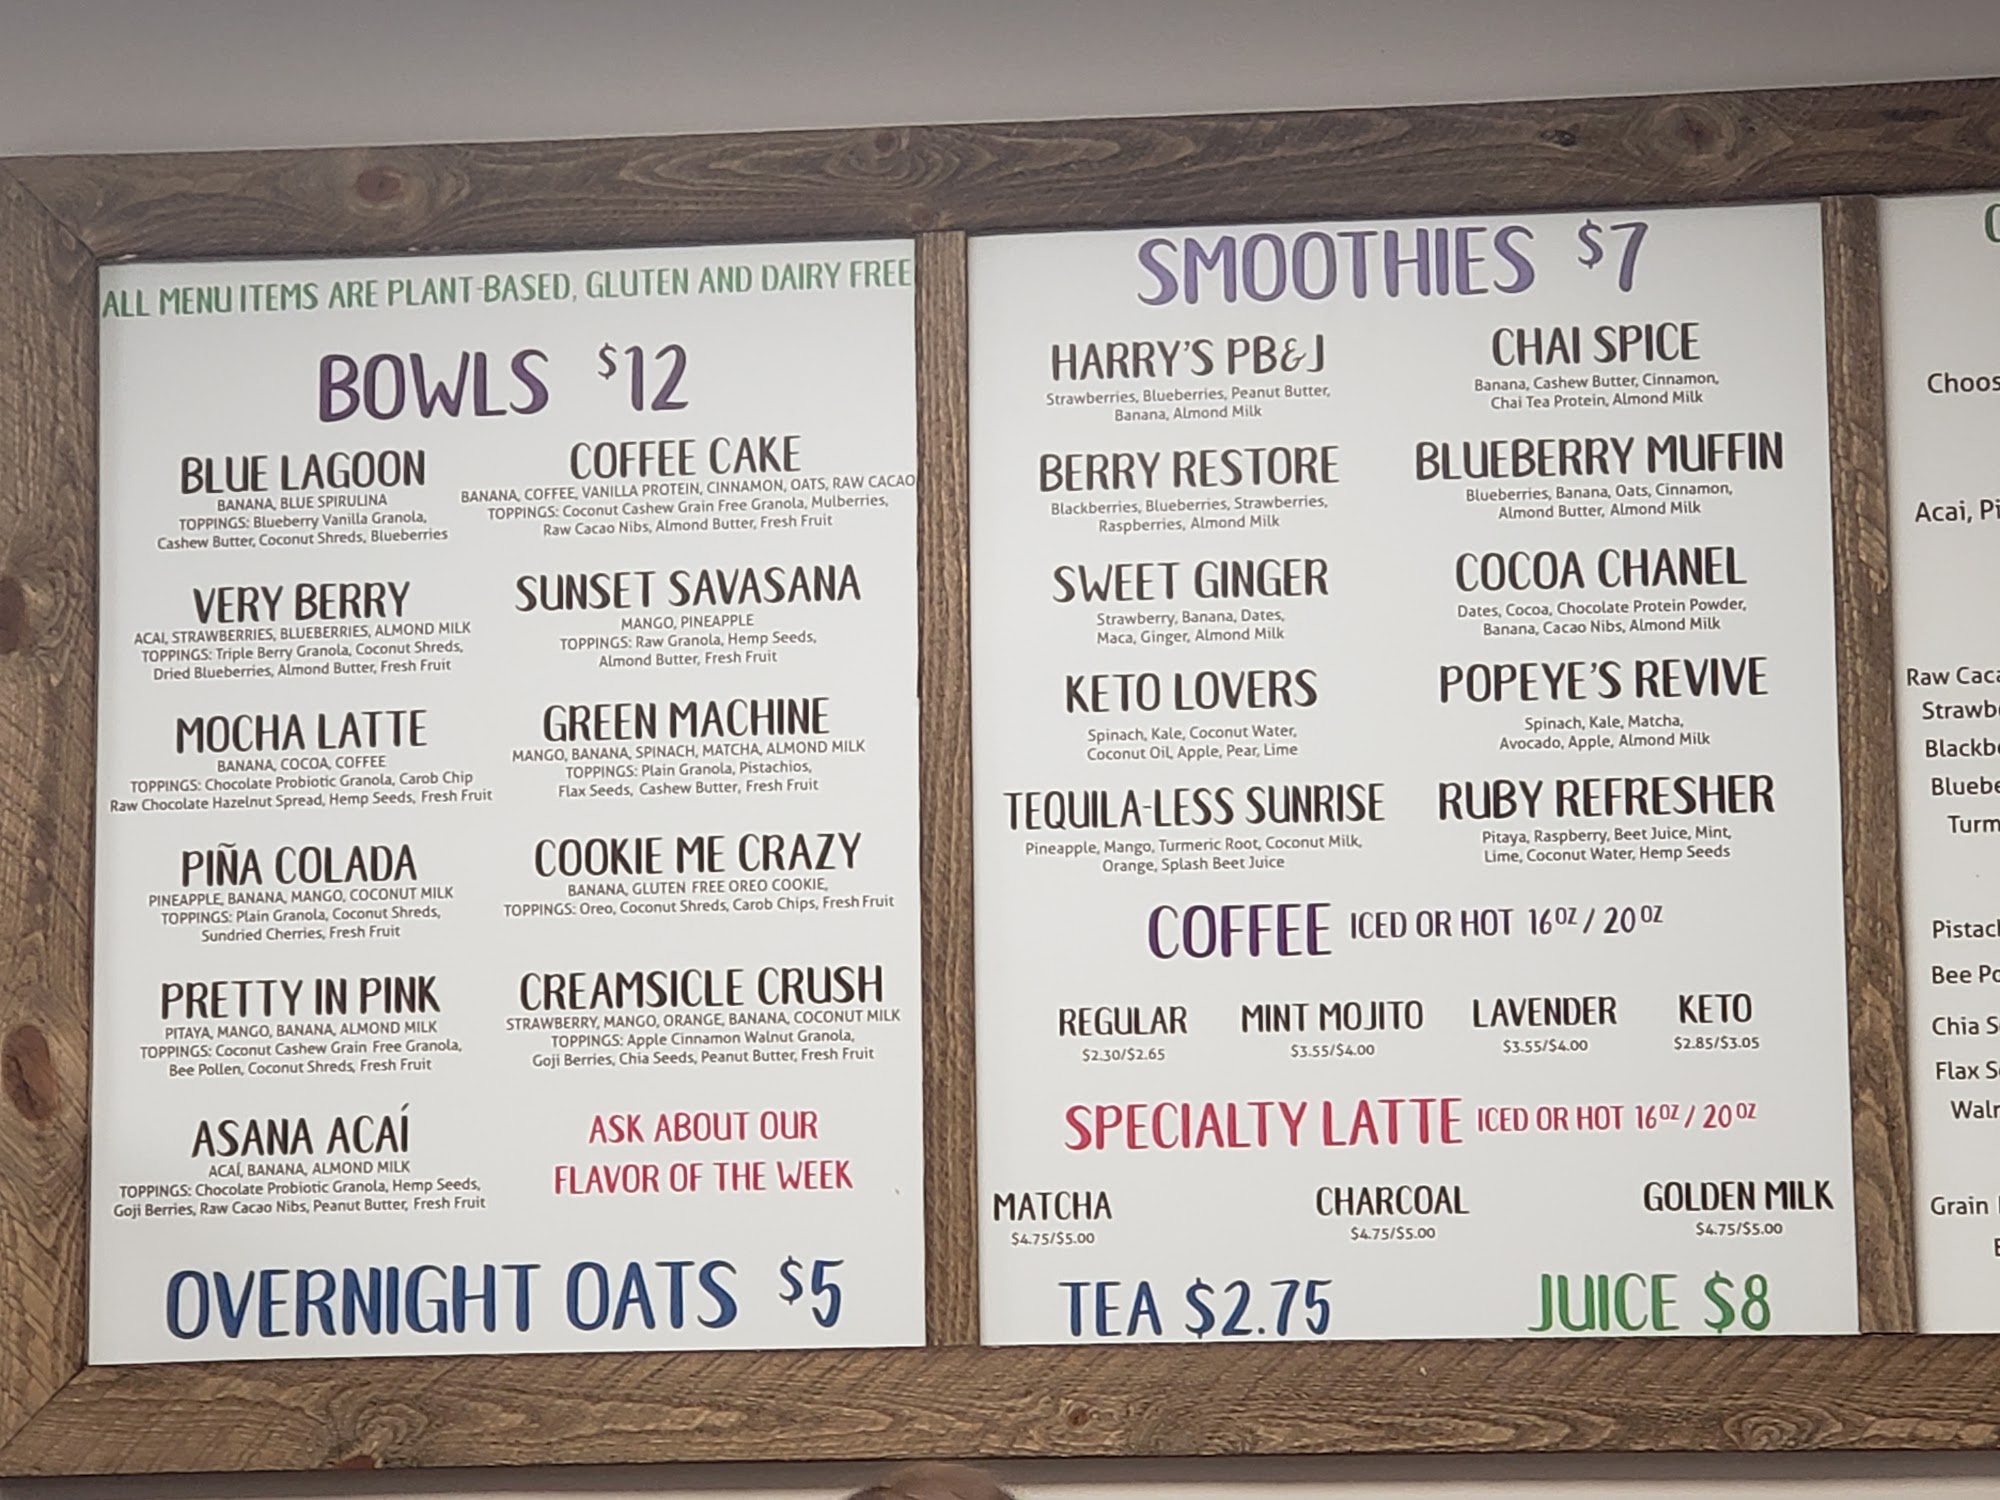 ALL MENU ITEMS ARE PLANT-BASED, GLUTEN AND DAIRY FREE
BOWLS $12
BLUE LAGOON
BANANA, BLUE SPIRULINA
TOPPINGS: Blueberry Vanilla Granola,
Cashew Butter, Coconut Shreds, Blueberries
COFFEE CAKE
BANANA, COFFEE, VANILLA PROTEIN, CINNAMON, OATS, RAW CACAO
TOPPINGS: Coconut Cashew Grain Free Granola, Mulberries,
Raw Cacao Nibs, Almond Butter, Fresh Fruit
VERY BERRY
ACAI, STRAWBERRIES, BLUEBERRIES, ALMOND MILK
TOPPINGS: Triple Berry Granola, Coconut Shreds,
Dried Blueberries, Almond Butter, Fresh Fruit
SUNSET SAVASANA
MANGO, PINEAPPLE
TOPPINGS: Raw Granola, Hemp Seeds,
Almond Butter, Fresh Fruit
MOCHA LATTE
BANANA, COCOA, COFFEE
TOPPINGS: Chocolate Probiotic Granola, Carob Chip
Raw Chocolate Hazelnut Spread, Hemp Seeds, Fresh Fruit
GREEN MACHINE
MANGO, BANANA, SPINACH, MATCHA, ALMOND MILK
TOPPINGS: Plain Granola, Pistachios,
Flax Seeds, Cashew Butter, Fresh Fruit
PIÑA COLADA
PINEAPPLE, BANANA, MANGO, COCONUT MILK
TOPPINGS: Plain Granola, Coconut Shreds,
Sundried Cherries, Fresh Fruit
COOKIE ME CRAZY
BANANA, GLUTEN FREE OREO COOKIE,
TOPPINGS: Oreo, Coconut Shreds, Carob Chips, Fresh Fruit
PRETTY IN PINK
PITAYA, MANGO, BANANA, ALMOND MILK
TOPPINGS: Coconut Cashew Grain Free Granola,
Bee Pollen, Coconut Shreds, Fresh Fruit
CREAMSICLE CRUSH
STRAWBERRY, MANGO, ORANGE, BANANA, COCONUT MILK
TOPPINGS: Apple Cinnamon Walnut Granola,
Goji Berries, Chia Seeds, Peanut Butter, Fresh Fruit
ASANA ACAÍ
ACAÍ, BANANA, ALMOND MILK
TOPPINGS: Chocolate Probiotic Granola, Hemp Seeds,
Goji Berries, Raw Cacao Nibs, Peanut Butter, Fresh Fruit
ASK ABOUT OUR
FLAVOR OF THE WEEK
OVERNIGHT OATS $5
SMOOTHIES $7
HARRY'S PB&J
Strawberries, Blueberries, Peanut Butter,
Banana, Almond Milk
CHAI SPICE
Banana, Cashew Butter, Cinnamon,
Chai Tea Protein, Almond Milk
BERRY RESTORE
Blackberries, Blueberries, Strawberries,
Raspberries, Almond Milk
BLUEBERRY MUFFIN
Blueberries, Banana, Oats, Cinnamon,
Almond Butter, Almond Milk
SWEET GINGER
Strawberry, Banana, Dates,
Maca, Ginger, Almond Milk
COCOA CHANEL
Dates, Cocoa, Chocolate Protein Powder,
Banana, Cacao Nibs, Almond Milk
KETO LOVERS
Spinach, Kale, Coconut Water,
Coconut Oil, Apple, Pear, Lime
POPEYE'S REVIVE
Spinach, Kale, Matcha,
Avocado, Apple, Almond Milk
TEQUILA-LESS SUNRISE
Pineapple, Mango, Turmeric Root, Coconut Milk,
Orange, Splash Beet Juice
RUBY REFRESHER
Pitaya, Raspberry, Beet Juice, Mint,
Lime, Coconut Water, Hemp Seeds
COFFEE ICED OR HOT 16OZ / 20OZ
REGULAR MINT MOJITO LAVENDER KETO
$2.30/$2.65 $3.55/$4.00 $3.55/$4.00 $2.85/$3.05
SPECIALTY LATTE ICED OR HOT 16OZ / 20OZ
MATCHA CHARCOAL GOLDEN MILK
$4.75/$5.00 $4.75/$5.00 $4.75/$5.00
TEA $2.75 JUICE $8
Choos
Acai, Pi
Raw Caca
Strawb
Blackb
Bluebe
Turm
Pistac
Bee Po
Chia S
Flax S
Waln
Grain